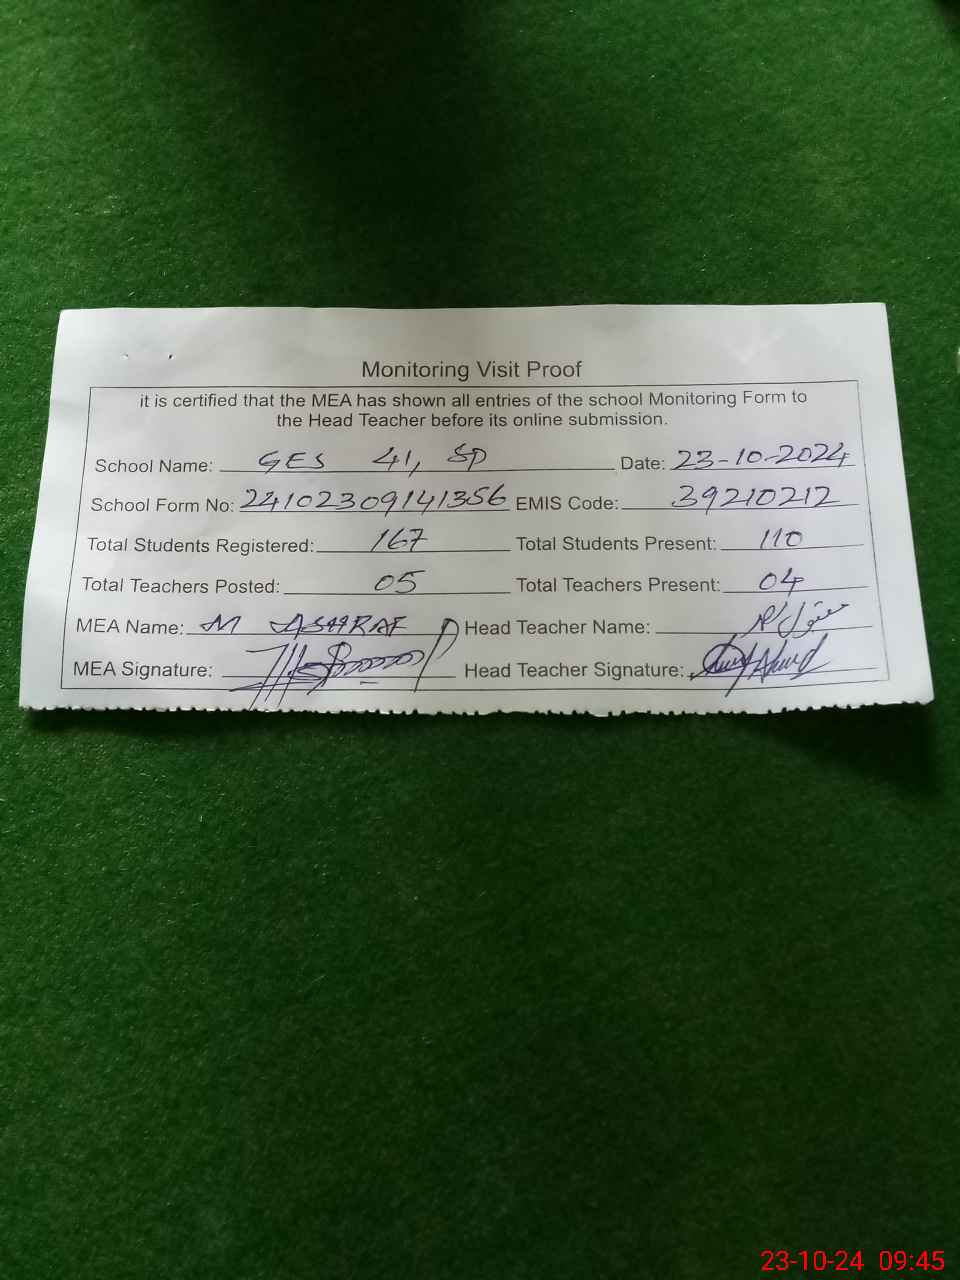 Monitoring Visit Proof
it is certified that the MEA has shown all entries of the school Monitoring Form to
the Head Teacher before its online submission.
School Name: GES 41, SP Date: 23-10-2024
School Form No: 24102309141356 EMIS Code: 39210212
Total Students Registered: 167 Total Students Present: 110
Total Teachers Posted: 05 Total Teachers Present: 04
MEA Name: M ASHRAF Head Teacher Name:
MEA Signature: Head Teacher Signature:
23-10-24 09:45